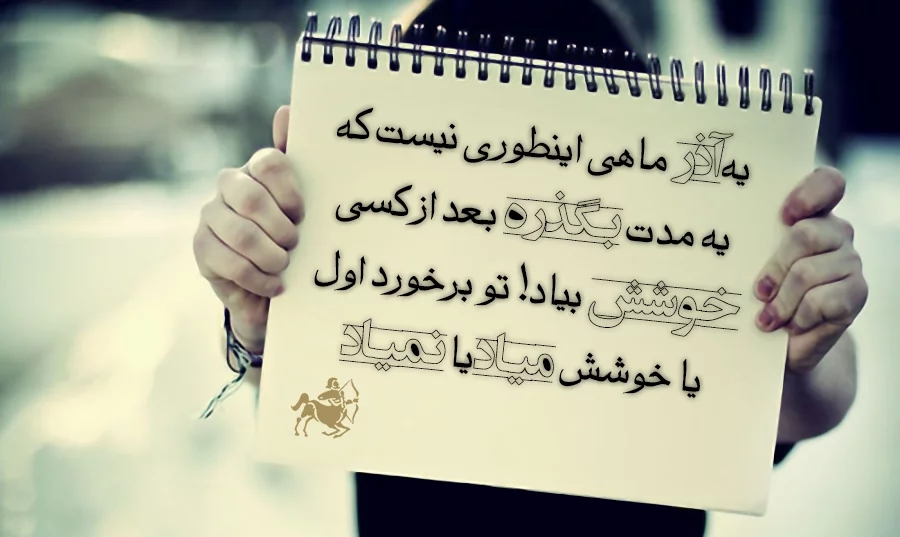 یه آذر ماهی اینطوری نیست که
یه مدت بگذره بعد از کسی
خوشش بیاد! تو برخورد اول
یا خوشش میاد یا نمیاد